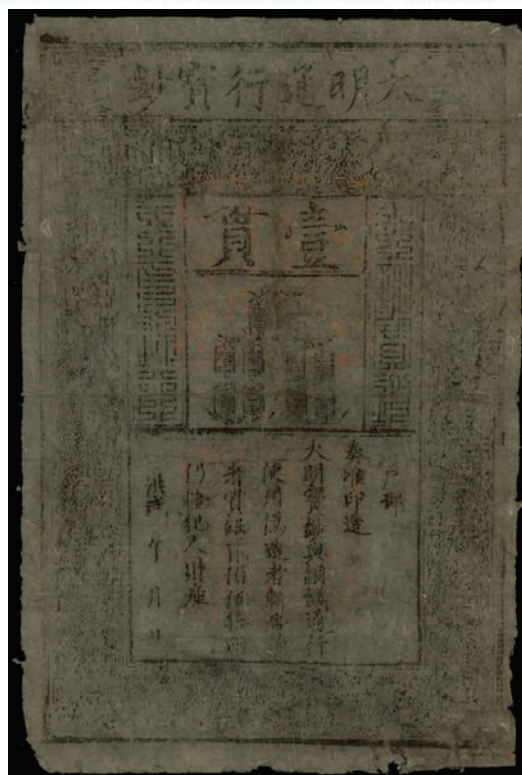 大明通行寶鈔
壹貫
戶部
奏准印造
大明寶鈔與銅錢通行
使用偽造者斬告
者賞銀貳佰伍拾兩
仍給犯人財產
洪武 年 月 日